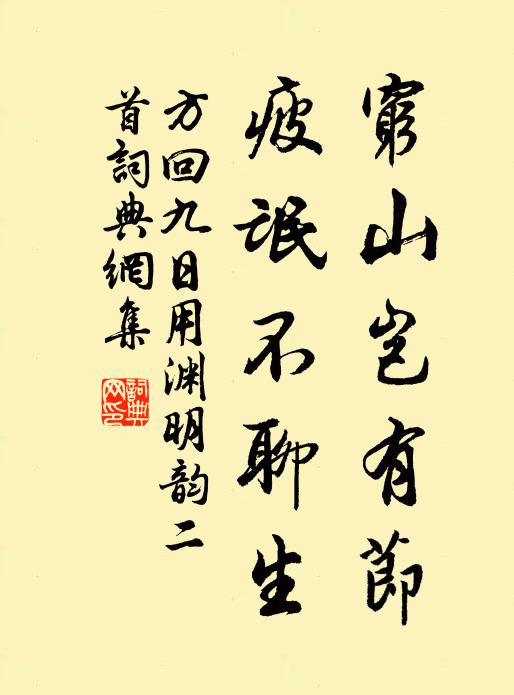 窮山豈有節
疲氓不聊生
方回九日用渊明韵二
首詞典網集
詞典网印